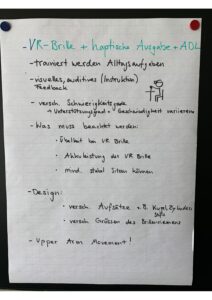 - VR-Brille + haptische Ausgabe + ADL
- trainiert werden Alltagsaufgaben
- visuelles, auditives (Instruktion)
Feedback
- versch. Schwierigkeitsgrade
+ Unterstützungsgrad + Geschwindigkeit variieren
- Was muss beachtet werden:
• Übelkeit bei VR Brille
• Akkuleistung der VR Brille
• mind. stabil Sitzen können
- Design:
• versch. Aufsätze z.B. Kugel, Zylinder
Stift
• versch. Grössen des Brillenriemens
- Upper Arm Movement!